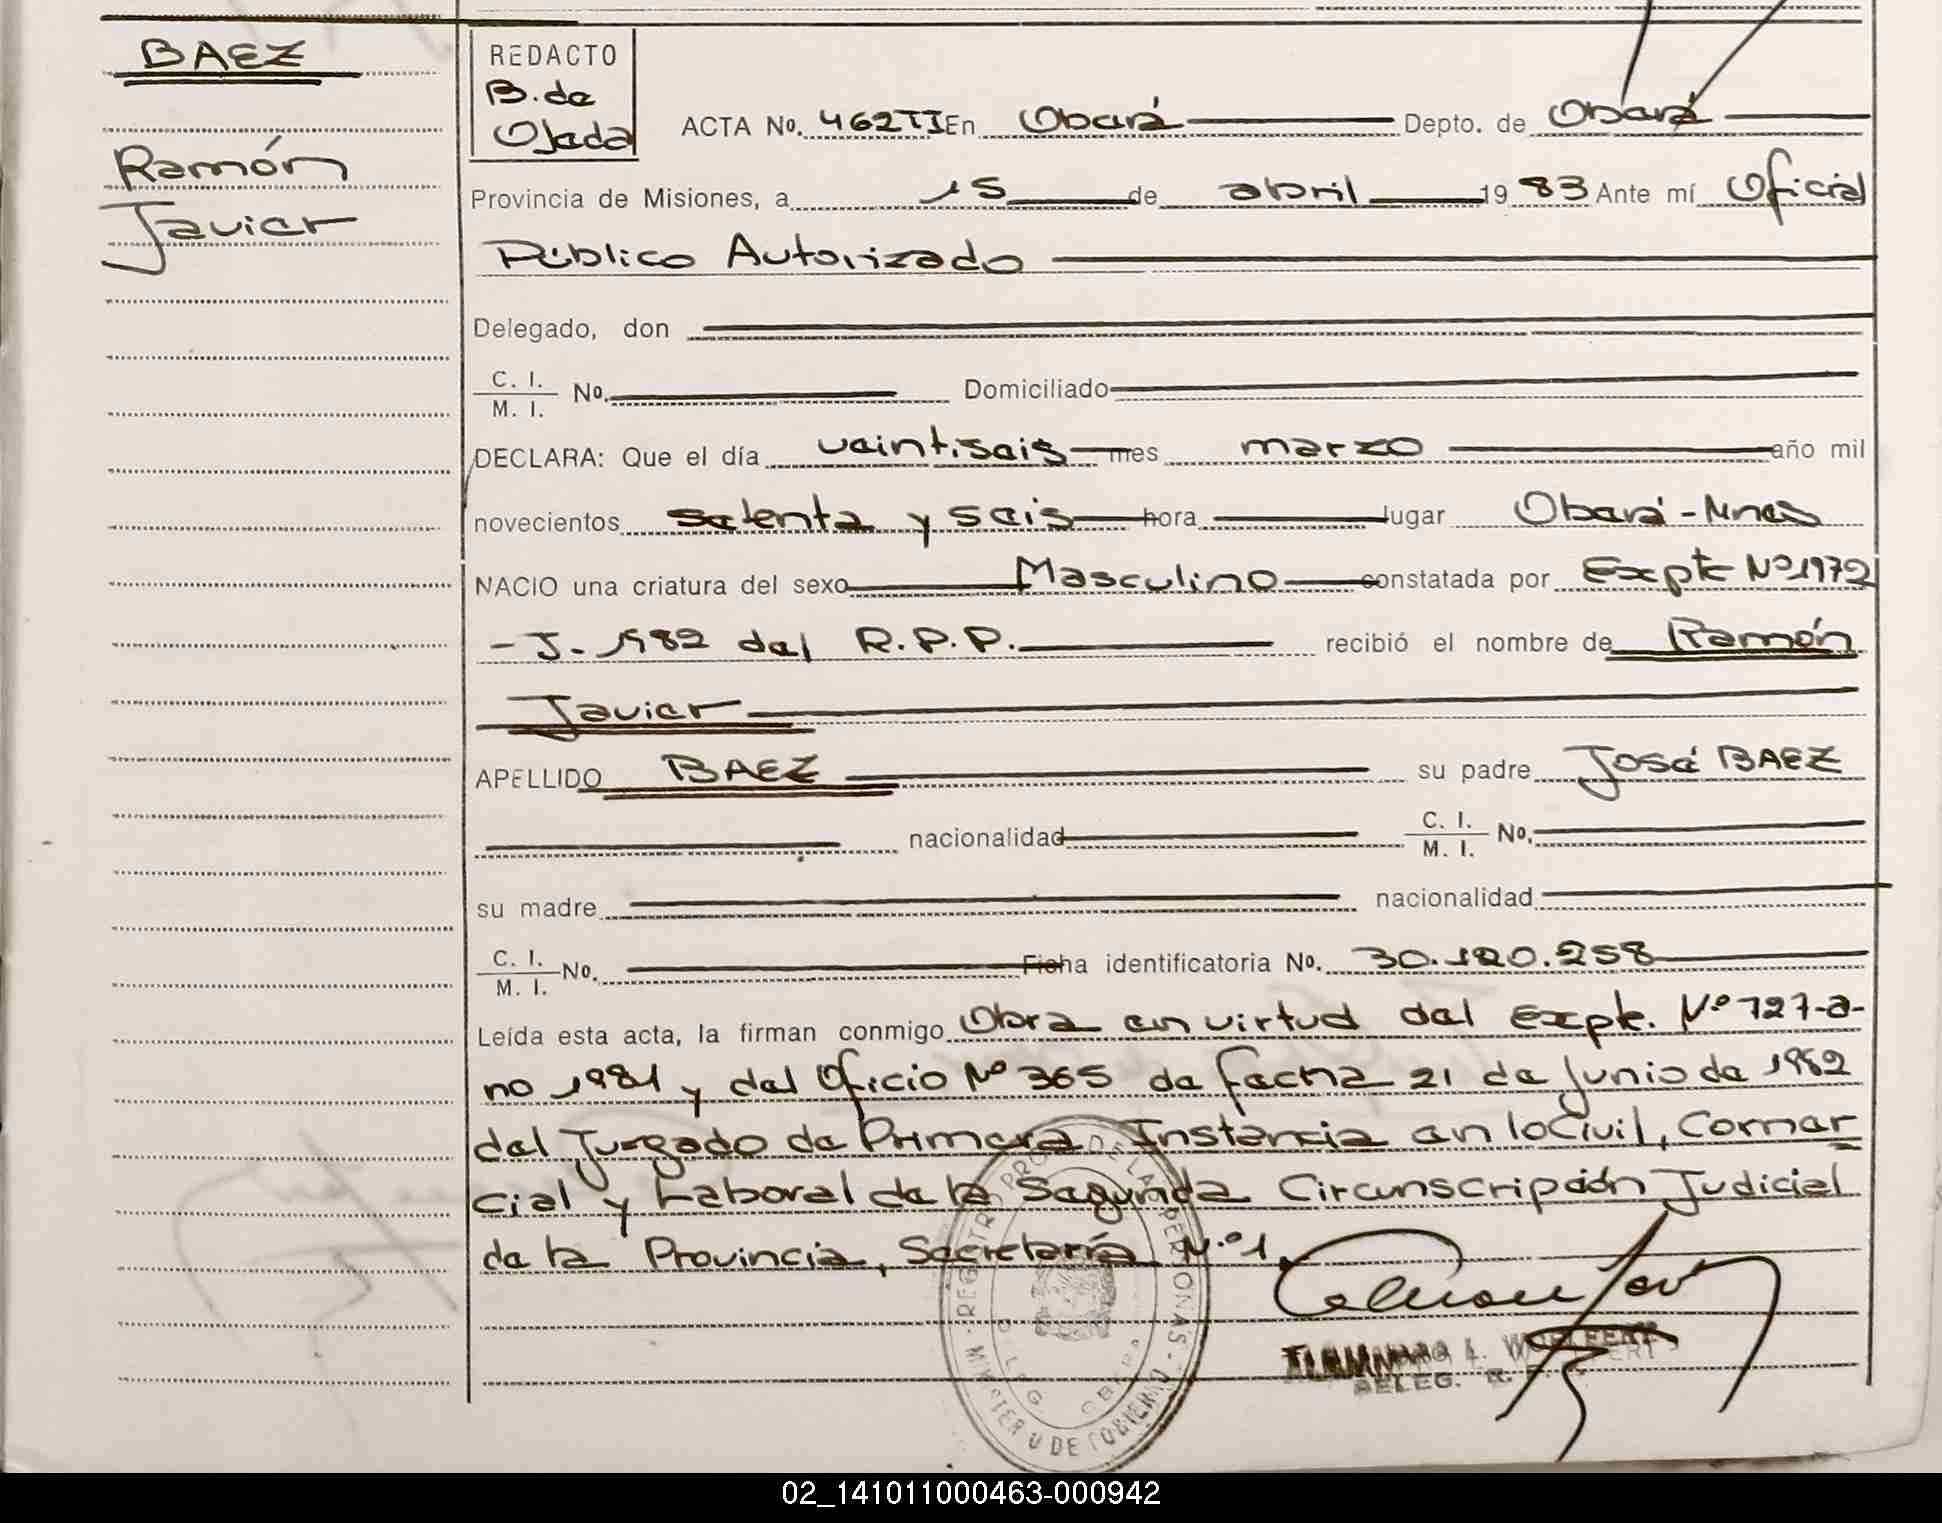 BAEZ
Ramón
Javier
REDACTO
B. de
Ojeda
ACTA No. 462TI En Oberá Depto. de Oberá
Provincia de Misiones, a 15 de abril 1983 Ante mí Oficial
Público Autorizado
Delegado, don
C. I.
M. I. No. Domiciliado
DECLARA: Que el día veintiseis mes marzo año mil
novecientos setenta y seis hora lugar Oberá - Mnes
NACIO una criatura del sexo Masculino constatada por Expte Nº 1972
- J. 1982 del R.P.P. recibió el nombre de Ramón
Javier
APELLIDO BAEZ su padre José BAEZ
nacionalidad C. I.
M. I. No.
su madre nacionalidad
C. I.
M. I. No. Ficha identificatoria No. 30.120.258
Leída esta acta, la firman conmigo Obra en virtud del Expte. Nº 727-a-
no 1981 y del Oficio Nº 365 de fecha 21 de junio de 1982
del Juzgado de Primera Instancia en lo Civil, Comer
cial y Laboral de la Segunda Circunscripción Judicial
de la Provincia, Secretaría N.º 1.
REGISTRO PROV. DE LAS PERSONAS - MINISTERIO DE GOBIERNO
DELEG. OBERA
DELEG. R.
02_141011000463-000942